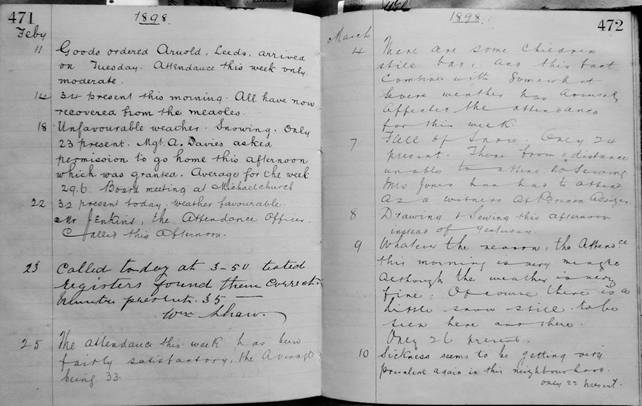 471
1898.
Feby
11 Goods ordered Arnold, Leeds, arrived
on Tuesday. Attendance this week only
moderate.
14 34 present this morning. All have now
recovered from the measles.
18 Unfavourable weather. Snowing. Only
23 present. Mgt. A. Davies asked
permission to go home this afternoon
which was granted. Average for the week
29.6 Board meeting at Michaelchurch
22 32 present today, weather favourable.
Mr Jenkins, the Attendance Officer
Called this Afternoon.
23 Called to-day at 3-50 tested
registers found them correct
number present. 35
Wm Shaw.
25 The attendance this week has been
fairly satisfactory, the average
being 33
1898.
472
March
4 There are some children
still bad, and this fact
Combined with Somewhat
Severe weather has
affected the attendance
for this week
7 Fall of Snow. Only 24
present. Those from a distance
unable to attend. No Sewing
Mrs Jones has had to attend
as a witness at
8 Drawing & Sewing this afternoon
instead of yesterday.
9 Whatever the reason, the Attendce
this morning is very meagre
Although the weather is very
fine; Of course there is a
little snow still to be
seen here and there.
Only 26 present.
10 Sickness seems to be getting very
prevalent again in this neighbourhood.
Only 22 present.